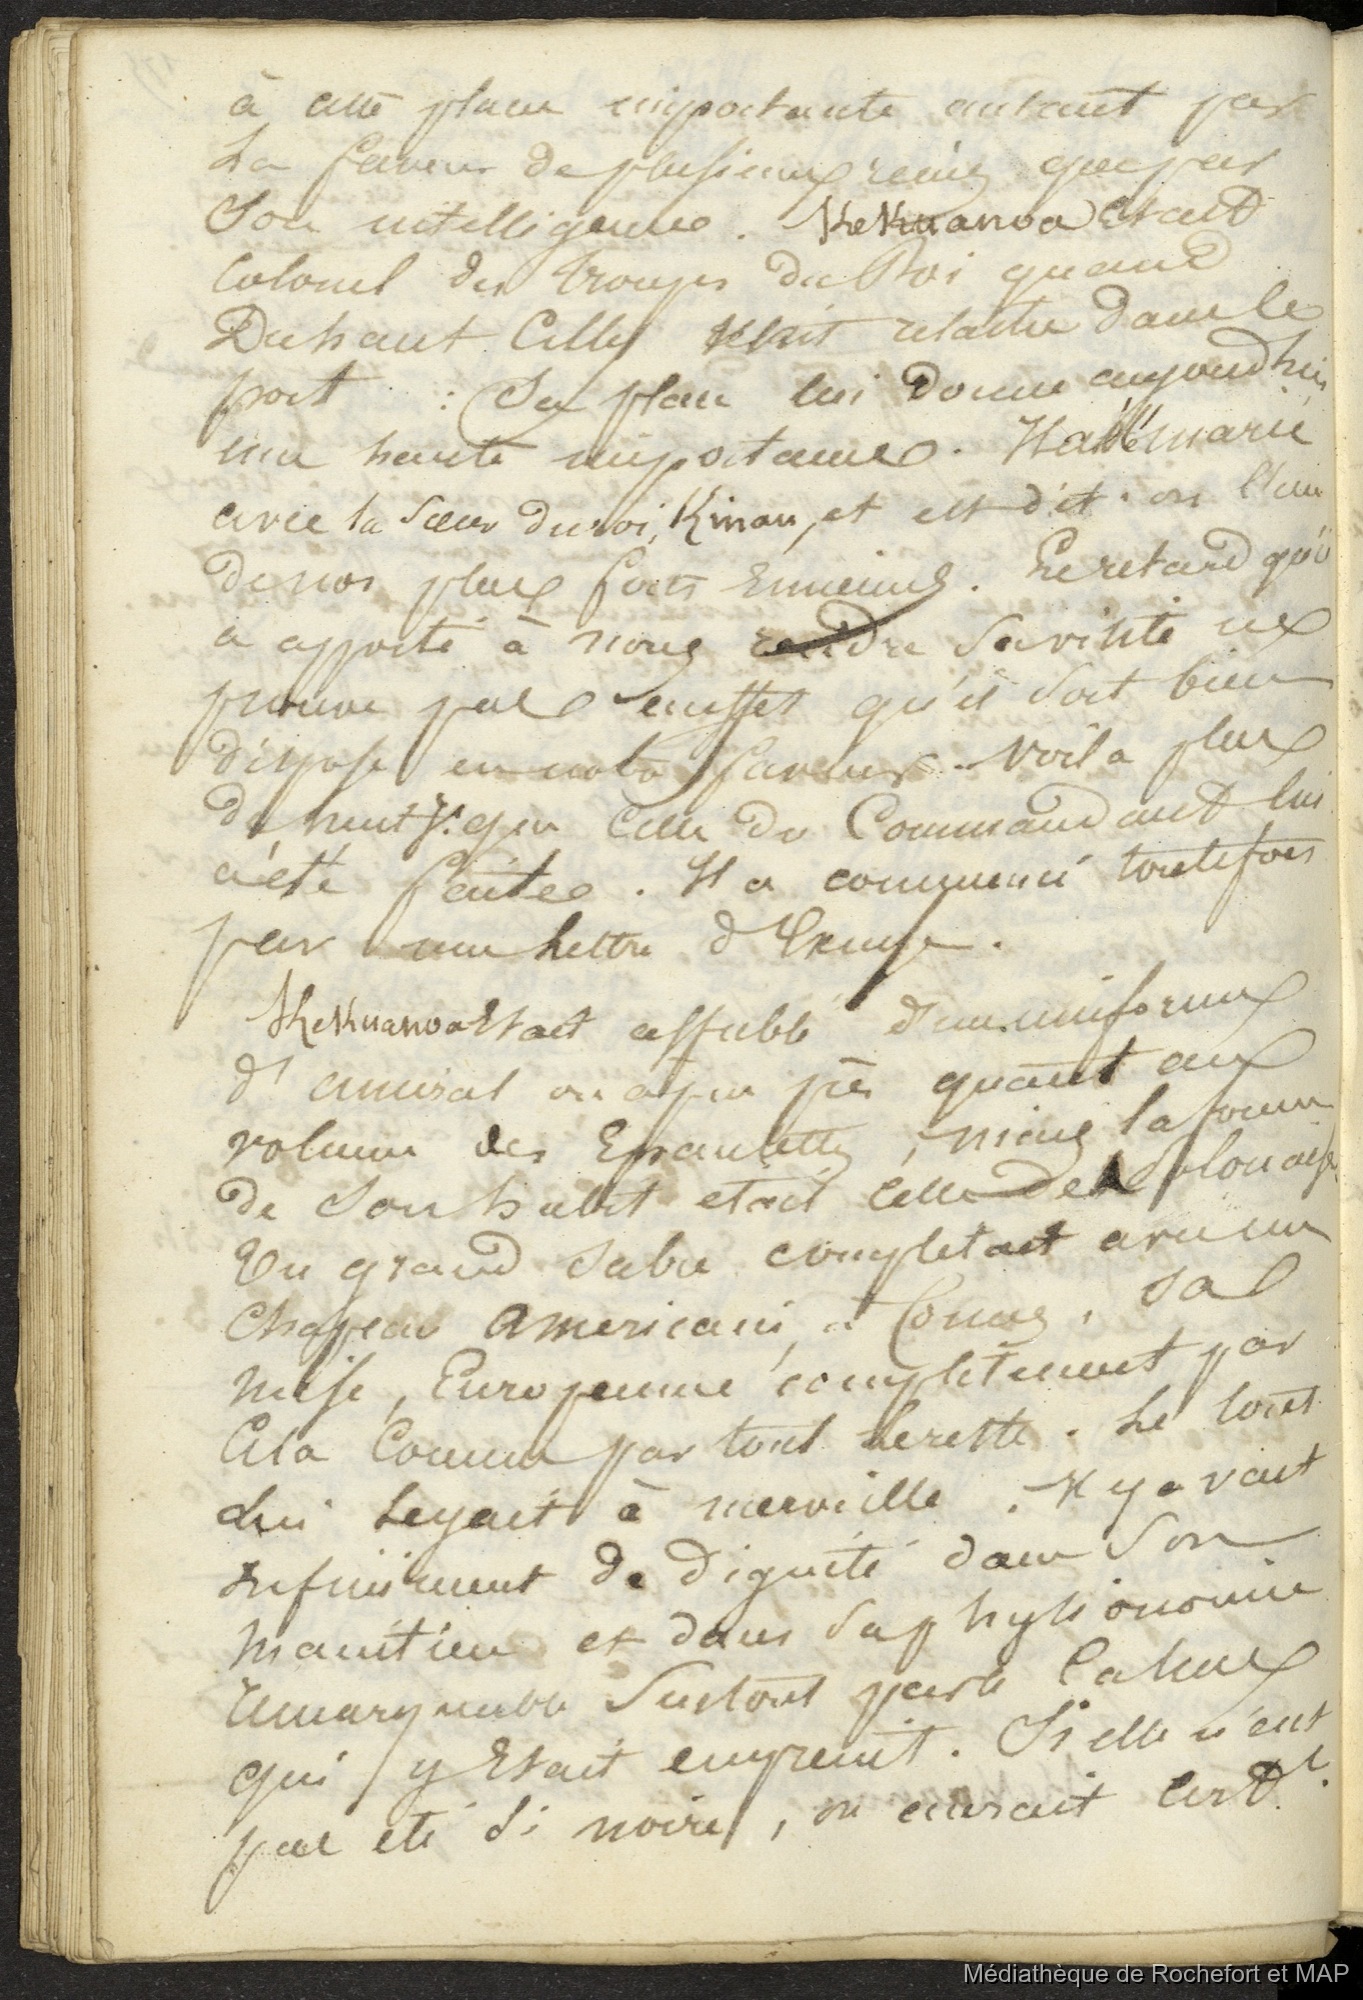 à cette place importante autant par
la faveur de plusieurs reines que par
son intelligence. KeKuanoa était
Colonel des troupes du Roi quand
Duhaut Cilly vint relacher dans le
port : Sa place lui donne aujourd'hui
une haute importance. Il a été marié
avec la sœur du roi, Kinau, et est dit-on l'un
de nos plus forts Ennemis. Le retard qu'il
a apporté à nous rendre sa visite ne
prouve pas en effet qu'il soit bien
disposé en notre faveur. Voila plus
de huit j. que celle du Commandant lui
a été faite. Il a commencé toutefois
par une lettre d'Excuse.
KeKuanoa Etait affublé d'un uniforme
d'amiral ou a peu près quant au
volume des Epaulettes, mais la forme
de son habit etait celle des Polonaises
Un grand sabre completait avec un
chapeau americain, à Cornes, sa
mise, Européenne complètement par
Cela Comme par tout le reste. Le tout
lui seyait à merveille. Il y avait
infiniment de dignité dans son
maintien et dans sa physionomie
remarquable surtout par le Calme
qui y Etait empreint. Si elle n'eut
pas été si noire, on aurait Cert.t
Médiathèque de Rochefort et MAP